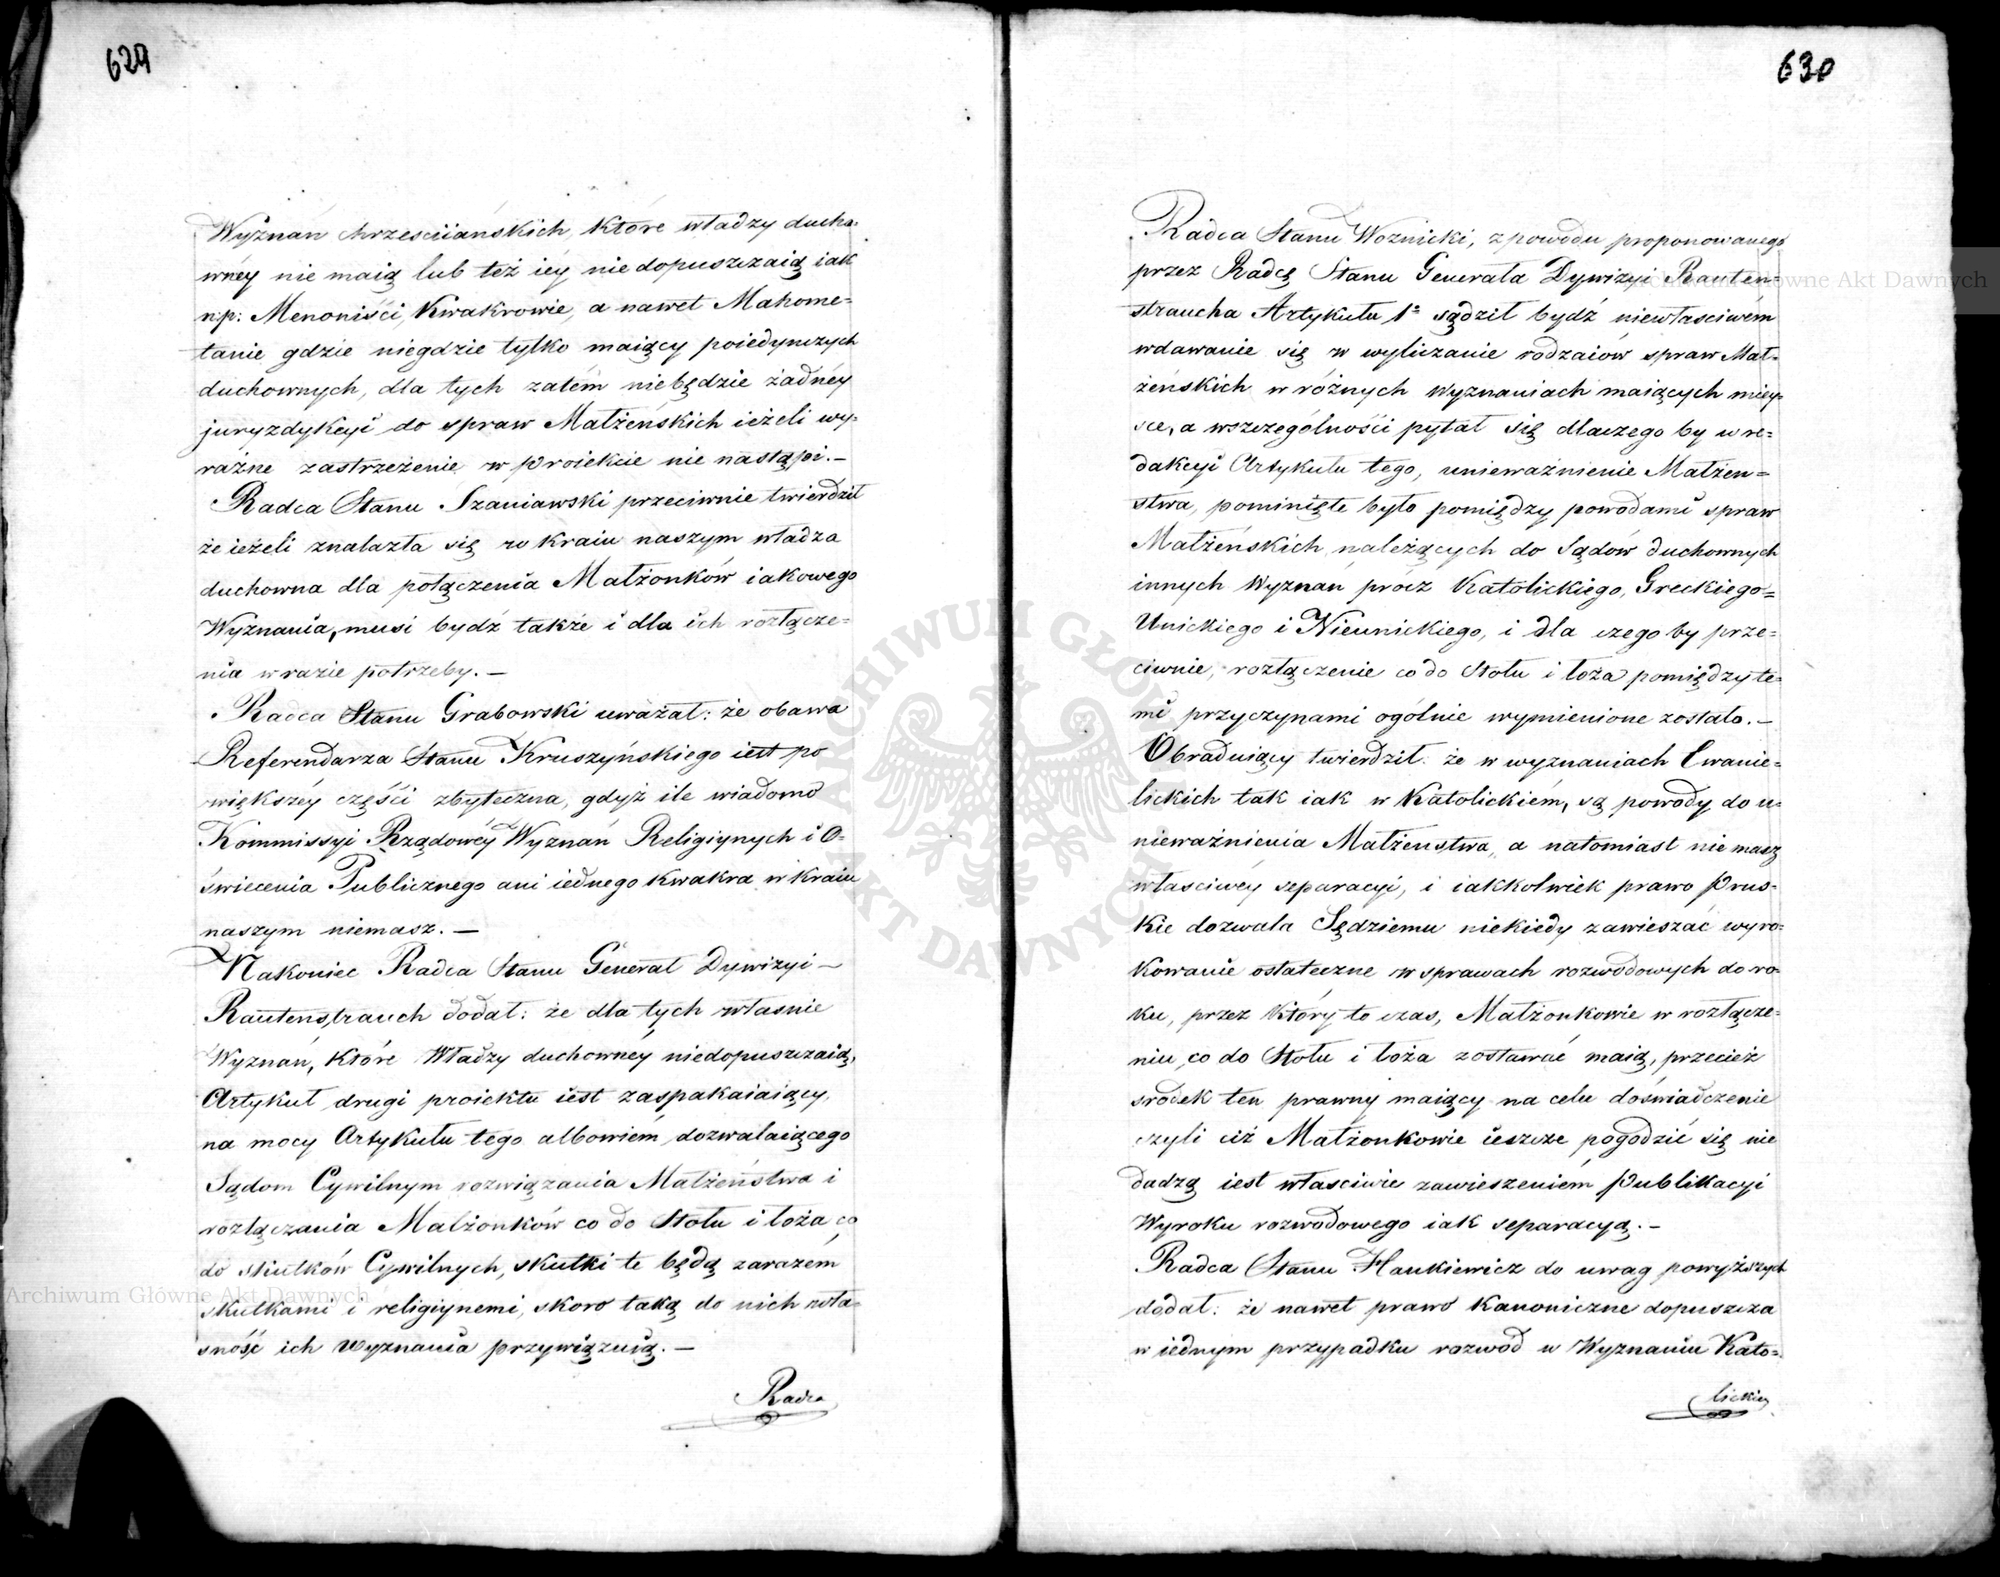 629
Wyznań chrześciiańskich, które władzy ducho-
wnéy nie maią lub téż iéy nie dopuszczaią iak
np: Menoniści, Kwakrowie, a nawet Mahome-
tanie gdzie niegdzie tylko maiący poiedynczych
duchownych, dla tych zatém niebędzie żadnéy
juryzdykcyi do spraw Małżeńskich ieżeli wy-
raźne zastrzeżenie w proiekcie nie nastąpi. —
Radca Stanu Szaniawski przeciwnie twierdził
że ieżeli znalazła się w kraiu naszym władza
duchowna dla połączenia Małżonków iakowego
Wyznania, musi bydź także i dla ich rozłącze-
nia w razie potrzeby. —
Radca Stanu Grabowski uważał: że obawa
Referendarza Stanu Kruszyńskiego iest po
większéy części zbyteczna, gdyż ile wiadomo
Kommissyi Rządowéy Wyznań Religiynych i O-
świecenia Publicznego ani iednego Kwakra w kraiu
naszym niemasz. —
Nakoniec Radca Stanu Generał Dywizyi —
Rautenstrauch dodał: że dla tych własnie
Wyznań, które Władzy duchownéy niedopuszczaią,
Artykuł drugi proiektu iest zaspakaiaiący,
na mocy Artykułu tego albowiém dozwalaiącego
Sądom Cywilnym rozwiązania Małżeństwa i
rozłączania Małżonków co do Stołu i łoża co
do skutków Cywilnych, skutki te będą zarazem
skutkami i religiynemi, skoro taką do nich wła-
sność ich wyznania przywiązuią. —
Radca
630
Radca Stanu Woźnicki, z powodu proponowanego
przez Radcę Stanu Generała Dywizyi Rauten-
straucha Artykułu 1º sądził bydź niewłasciwém
wdawanie się w wyliczanie rodzaiów spraw Mał-
żeńskich w różnych Wyznaniach maiących miey-
sce, a wszczególności pytał się dlaczego by w re-
dakcyi Artykułu tego, unieważnienie Małżeń-
stwa, pominięte było pomiędzy powodami spraw
Małżeńskich należących do Sądów duchownych
innych Wyznań prócz Katolickiego, Greckiego-
Unickiego i Nieunickiego, i dla czego by prze-
ciwnie, rozłączenie co do Stołu i łoża pomiędzy te-
mi przyczynami ogólnie wymienione zostało. —
Obraduiący twierdził: że w wyznaniach Ewanie-
lickich tak iak w Katolickiém, są powody do u-
nieważnienia Małżeństwa, a natomiast nie masz
własciwéy separacyi, i iakkolwiek prawo Prus-
kie dozwala Sędziemu niekiedy zawieszać wyro-
kowanie ostateczne w sprawach rozwodowych do ro-
ku, przez który to czas, Małżonkowie w rozłącze-
niu co do Stołu i łoża zostawać maią, przecież
srodek ten prawny maiący na celu doświadczenie
czyli ciż Małżonkowie ieszcze pogodzić się nie
dadzą iest własciwie zawieszeniém Publikacyi
Wyroku rozwodowego iak separacyą. —
Radca Stanu Hankiewicz do uwag powyższych
dodał: że nawet prawo Kanoniczne dopuszcza
w iednym przypadku rozwód w Wyznaniu Kato-
lickie
Archiwum Główne Akt Dawnych
Archiwum Główne Akt Dawnych
ARCHIWUM GŁÓWNE AKT DAWNYCH